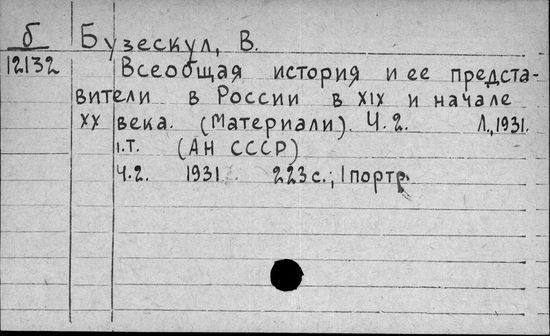 б Бузескул, В.
12132 Всеобщая история и ее предста-
вители в России в XIX и начале
XX века. (Материали). Ч.2. Л., 1931.
1.т. (АН СССР)
Ч.2. 1931 223с.; 1 портр.